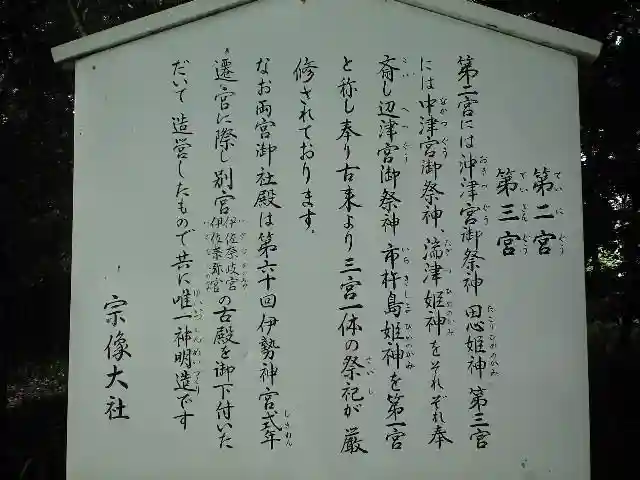 第二宮
第三宮
第二宮には沖津宮御祭神 田心姫神 第三宮
には中津宮御祭神、湍津姫神をそれぞれ奉
斎し辺津宮御祭神 市杵島姫神を第一宮
と称し奉り古来より三宮一体の祭祀が厳
修されております。
なお両宮御社殿は第六十回伊勢神宮式年
遷宮に際し別宮伊佐奈岐宮伊佐奈弥宮の古殿を御下付いた
だいて造営したもので共に唯一神明造です
宗像大社